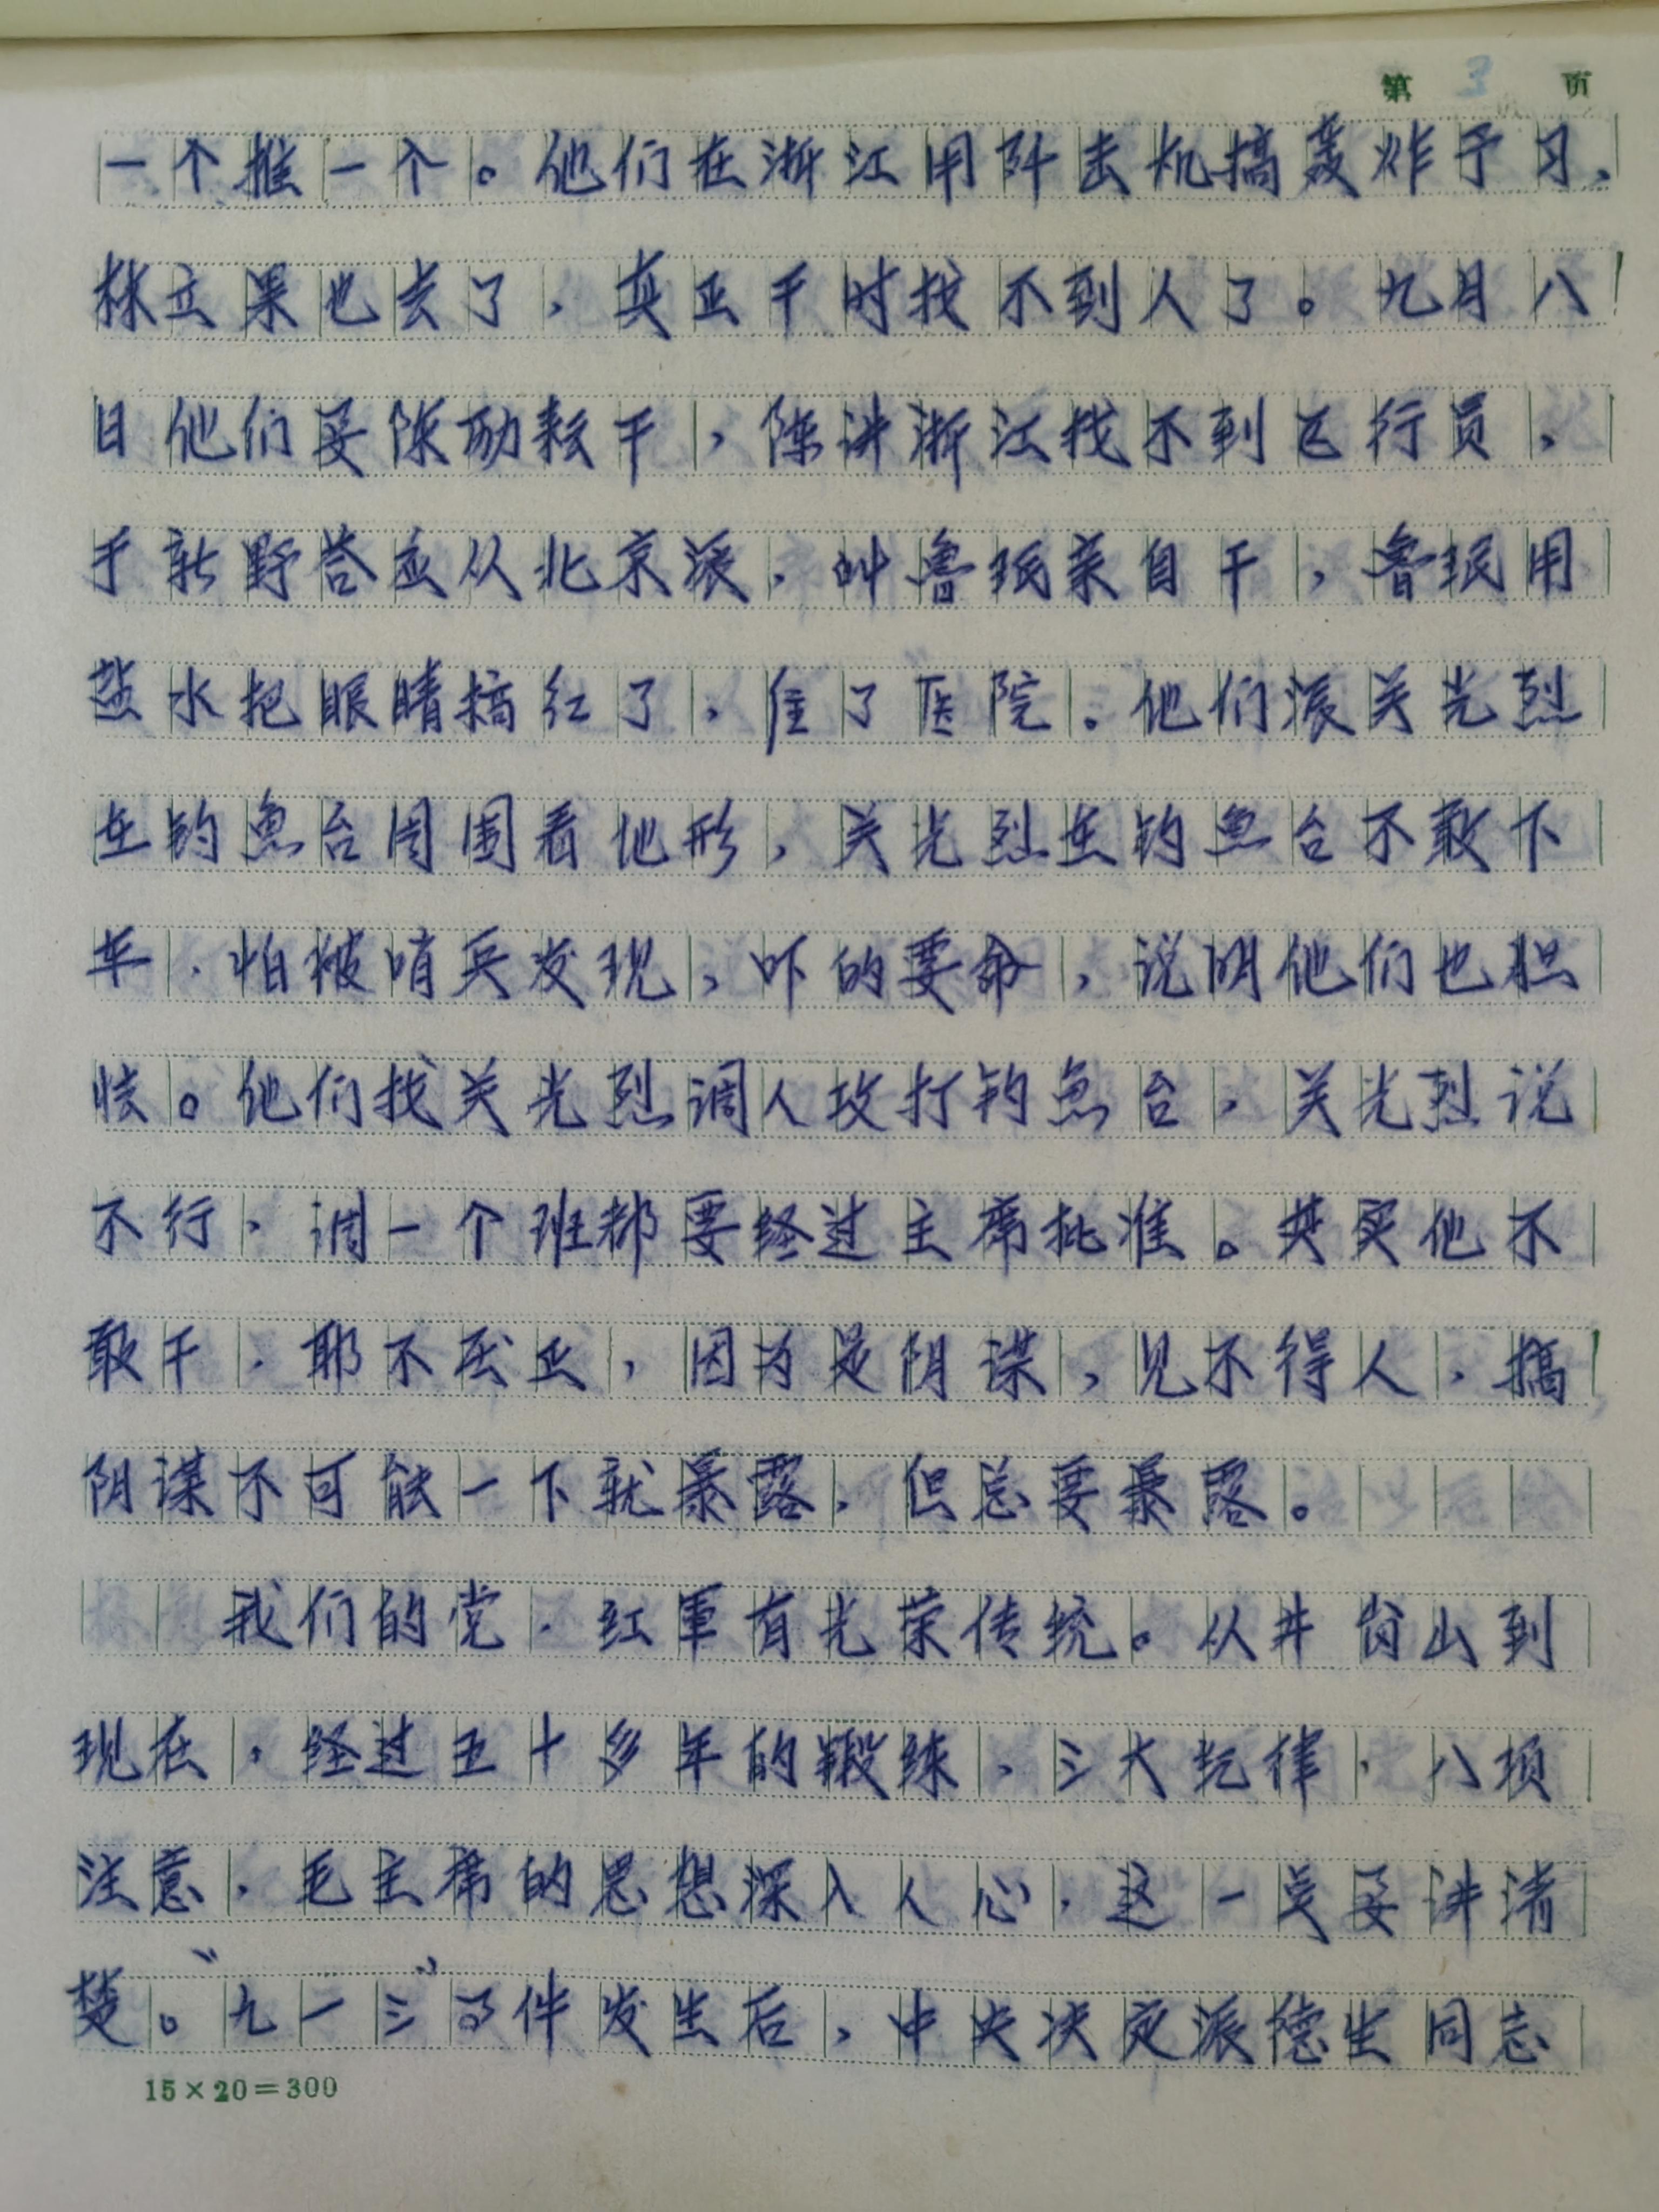 第 3 页
一个推一个。他们在浙江用歼击机搞轰炸予习，
林立果也去了，真正干时找不到人了。九月八
日他们要陈励耘干，陈讲浙江找不到飞行员，
于新野答应从北京派，叫鲁珉亲自干，鲁珉用
盐水把眼睛搞红了，住了医院。他们派关光烈
在钓鱼台周围看地形，关光烈在钓鱼台不敢下
车，怕被哨兵发现，吓的要命，说明他们也胆
怯。他们找关光烈调人攻打钓鱼台，关光烈说
不行，调一个班都要经过主席批准。其实他不
敢干，邪不压正，因为是阴谋，见不得人，搞
阴谋不可能一下就暴露，但总要暴露。
我们的党，红军有光荣传统。从井岗山到
现在，经过五十多年的锻练，三大纪律，八项
注意，毛主席的思想深入人心，这一点要讲清
楚。“九一三”事件发生后，中央决定派德生同志
15×20=300